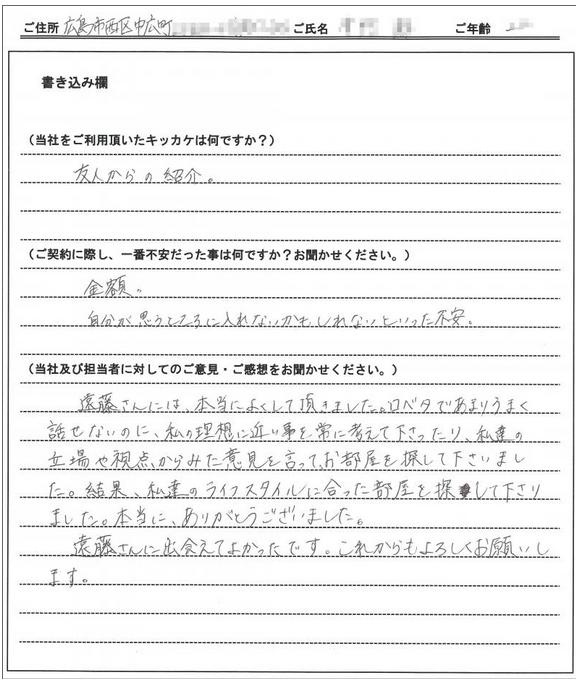 ご住所 広島市西区中広町 ご氏名 ご年齢
書き込み欄
(当社をご利用頂いたキッカケは何ですか?)
友人からの紹介。
(ご契約に際し、一番不安だった事は何ですか?お聞かせください。)
金額。
自分が思うところに入れないかもしれないといった不安。
(当社及び担当者に対してのご意見・ご感想をお聞かせください。)
遠藤さんには、本当によくして頂きました。口ベタであまりうまく
話せないのに、私の理想に近い事を常に考えて下さったり、私達の
立場や視点からみた意見を言って、お部屋を探して下さいまし
た。結果、私達のライフスタイルに合った部屋を探して下さり
ました。本当に、ありがとうございました。
遠藤さんに出会えてよかったです。これからもよろしくお願いし
ます。